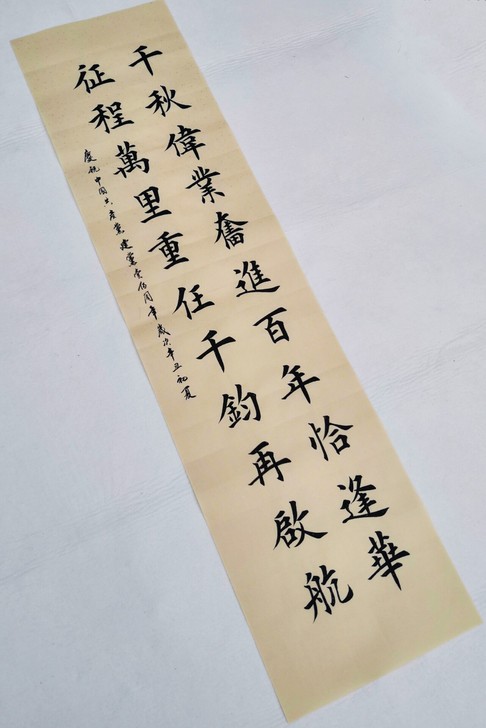 千秋偉業奮進百年恰逢華
征程萬里重任千鈞再啟航
慶祝中國共產黨建黨壹佰周年歲次辛丑初夏